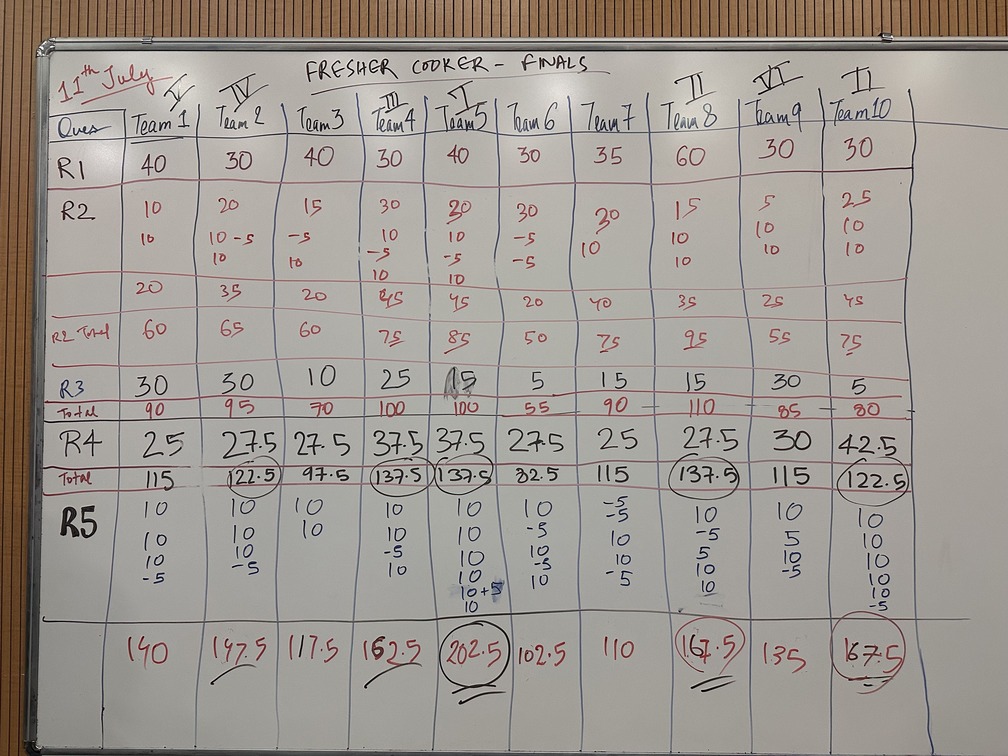 FRESHER COOKER - FINALS
11th July
V IV III I II VI II
Ques Team 1 Team 2 Team 3 Team 4 Team 5 Team 6 Team 7 Team 8 Team 9 Team 10
R1 40 30 40 30 40 30 35 60 30 30
R2 10 20 15 30 30 30 30 15 5 25
10 10 -5 -5 10 10 -5 10 10 10 10
10 10 -5 -5 -5 10 10 10
10 10
20 35 20 45 45 20 40 35 25 45
R2 Total 60 65 60 75 85 50 75 95 55 75
R3 30 30 10 25 15 5 15 15 30 5
Total 90 95 70 100 100 55 90 110 85 80
R4 25 27.5 27.5 37.5 37.5 27.5 25 27.5 30 42.5
Total 115 122.5 97.5 137.5 137.5 82.5 115 137.5 115 122.5
R5 10 10 10 10 10 10 -5 10 10 10
10 10 10 10 10 -5 -5 -5 5 10
10 10 -5 10 10 10 5 10 10
-5 -5 10 10 -5 10 10 -5 10
10 +5 10 -5 10 10
10 -5
140 147.5 117.5 162.5 202.5 102.5 110 167.5 135 167.5